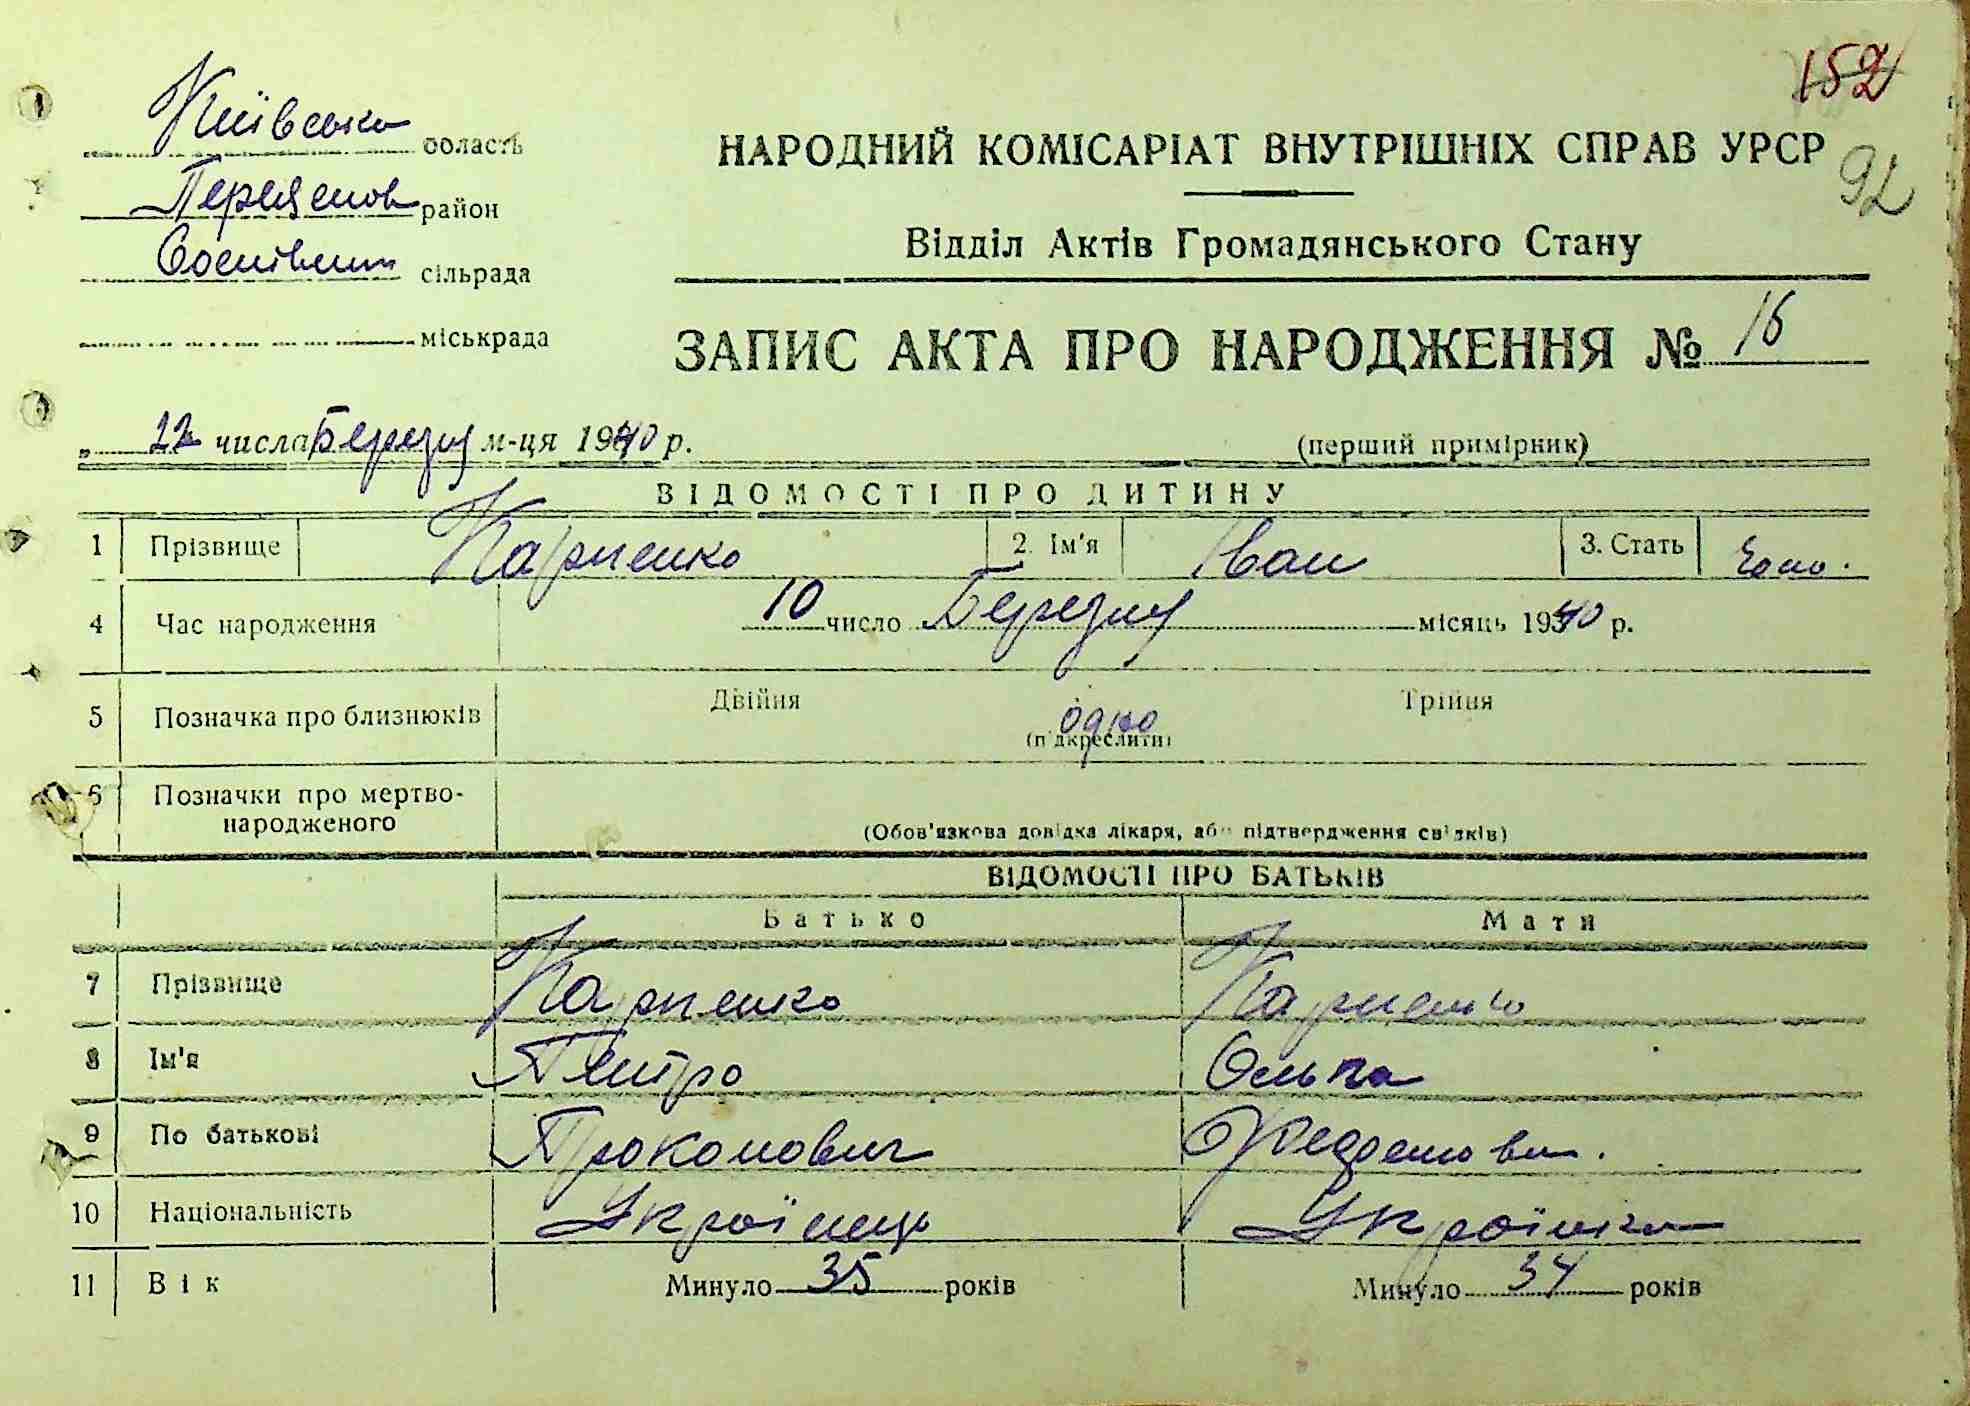 152
92
Київська область
Переяслов район
Соснівська сільрада
міськрада
НАРОДНИЙ КОМІСАРІАТ ВНУТРІШНІХ СПРАВ УРСР
Відділ Актів Громадянського Стану
ЗАПИС АКТА ПРО НАРОДЖЕННЯ № 16
„ 22 числа Березня м-ця 1940 р.
(перший примірник)
ВІДОМОСТІ ПРО ДИТИНУ
1 Прізвище Карпенко 2. Ім'я Іван 3. Стать чоло.
4 Час народження 10 число Березня місяць 1940 р.
5 Позначка про близнюків Двійня одно Трійня
(підкреслити)
6 Позначки про мертво-
народженого
(Обов'язкова довідка лікаря, або підтвердження свідків)
ВІДОМОСТІ ПРО БАТЬКІВ
Батько Мати
7 Прізвище Карпенко Карпенко
8 Ім'я Петро Ольга
9 По батькові Прокопович
10 Національність Українець Українка
11 Вік Минуло 35 років Минуло 34 років